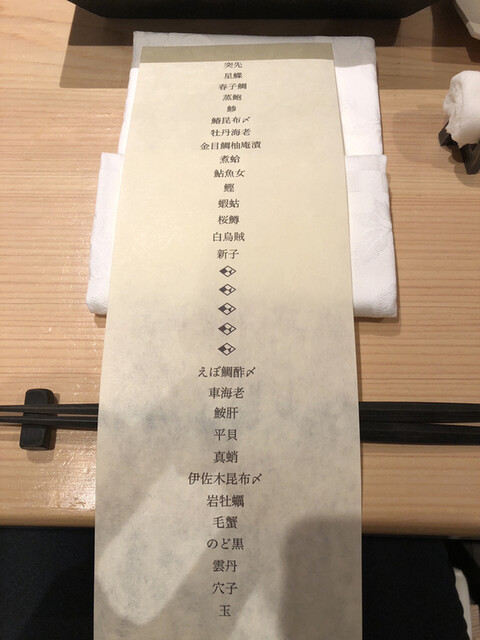 突先
星鰈
春子鯛
蒸鮑
鯵
鰆昆布〆
牡丹海老
金目鯛柚庵漬
煮蛤
鮎魚女
鰹
蝦蛄
桜鱒
白烏賊
新子
えぼ鯛酢〆
車海老
鮟肝
平貝
真蛸
伊佐木昆布〆
岩牡蠣
毛蟹
のど黒
雲丹
穴子
玉